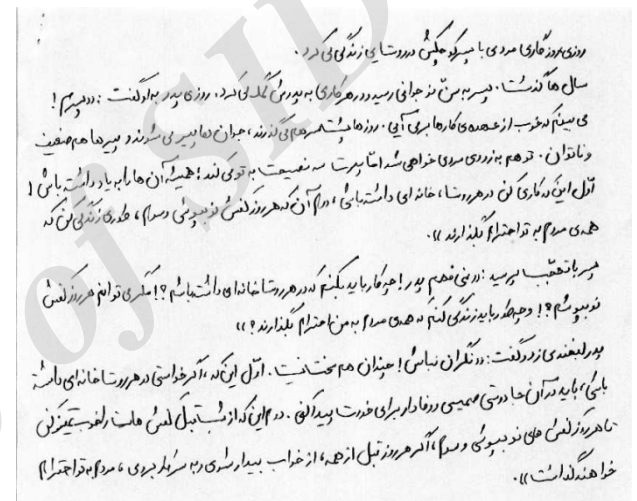 روزی روزگاری مردی با پسر کوچکش در روستایی زندگی می کرد.
سال ها گذشت. پسر به سنّ نوجوانی رسید و در هر کاری به پدرش کمک می کرد. روزی پدر به او گفت: «پسرم!
می بینم که خوب از عهده ی کارها برمی آیی. روزها پشت سر هم می گذرند، جوان ها پیر می شوند و پیرها هم ضعیف
و ناتوان. تو هم به زودی مردی خواهی شد امّا پدرت سه نصیحت به تو می کند! همیشه آن ها را به یاد داشته باش!
اوّل این که کاری کن در هر روستا، خانه ای داشته باشی، دوم آن که هر روز کفش نو بپوشی و سوم، طوری زندگی کن که
همه ی مردم به تو احترام بگذارند».
پسر با تعجّب پرسید: «نمی فهمم پدر! چه کار باید بکنم که در هر روستا خانه ای داشته باشم؟! مگر می توانم هر روز کفش
نو بپوشم؟! و چه طور باید زندگی کنم که همه ی مردم به من احترام بگذارند؟»
پدر لبخندی زد و گفت: «نگران نباش! چندان هم سخت نیست. اوّل این که، اگر خواستی در هر روستا خانه ای داشته
باشی، باید در آن جا دوستی صمیمی و وفادار برای خودت پیدا کنی. دوم این که از شب قبل کفش هایت را خوب تمیز کنی
تا هر روز کفش های نو بپوشی و سوم، اگر هر روز قبل از همه، از خواب بیدار شوی و به سر کار بروی، مردم به تو احترام
خواهند گذاشت».
oj SID